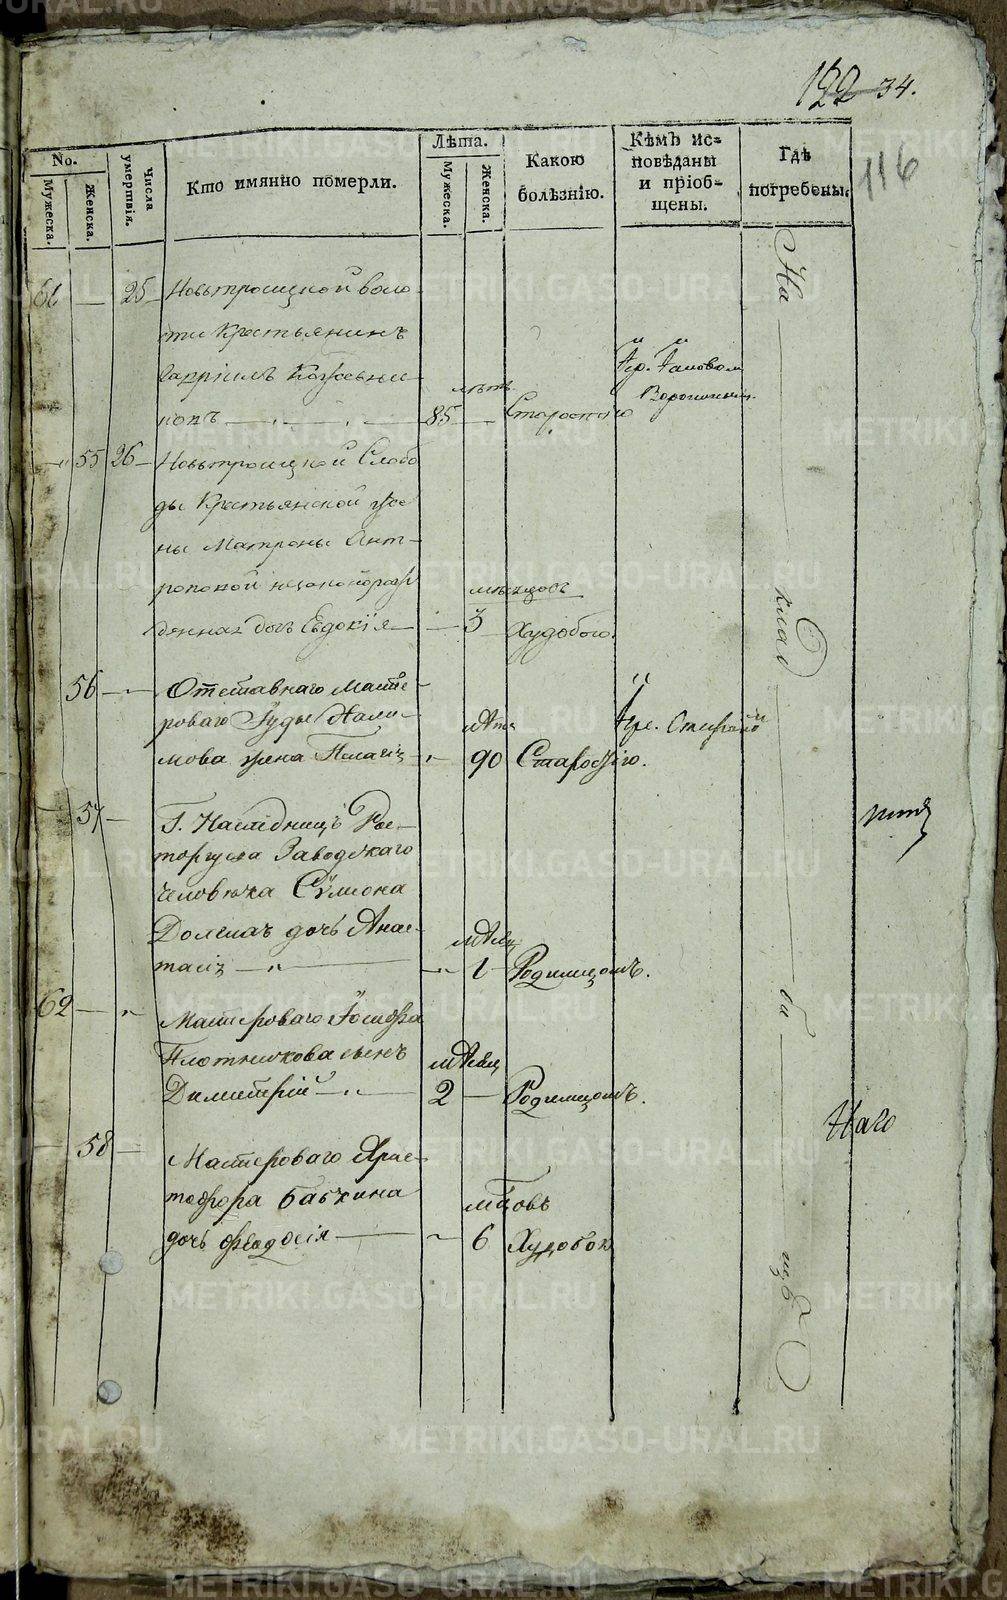 122 34.
116
No.
Мужеска.
Женска.
Числа умертвія.
Кто имянно померли.
Лѣта.
Мужеска.
Женска.
Какою болѣзнію.
Кѣмъ ис=
повѣданы
и пріоб=
щены.
Гдѣ
погребены.
61 — 25 Новотроицкой воло-
сти Крестьянинъ
Гавріилъ Кожевни-
ковъ — 85 лѣтъ Старостію
Іер. Іаковом
Ворониным.
55 26 Новотроицкой Слобо
ды Крестьянской жо
ны Матроны Ант-
роповой незаконорож
денная дочь Евдокія — 3 мѣсяцовъ Худобою.
56 — Отставнаго Масте-
роваго Іуды Нали-
мова жена Пелагія — 90 лѣтъ Старостію.
Іере. Стефаном
57 — Г. Наслѣдницъ Рас-
торгуева Заводскаго
человѣка Сѵмеона
дочь Анас-
тасія — 1 мѣсяц Родимцомъ.
62 — Мастероваго Іосифа
Плотникова сынъ
Димитрій — 2 мѣсяц Родимцомъ.
58 — Мастероваго Хрис-
тофора Бабкина
дочь Феодосія — 6 мцовъ Худобою
На
клад
би
щѣ
Наго
METRIKI.GASO-URAL.RU